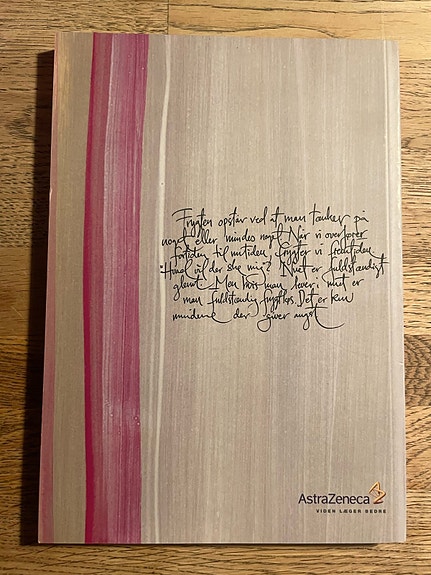 Frygten opstår ved at man tænker på
noget eller mindes noget. Når vi overfører
fortiden til nutiden, frygter vi fremtiden.
"Hvad vil der ske mig?" Nuet er fuldstændigt
glemt. Men hvis man lever i nuet er
man fuldstændig frygtløs. Det er kun
minderne der giver angst
AstraZeneca
VIDEN LÆGER BEDRE